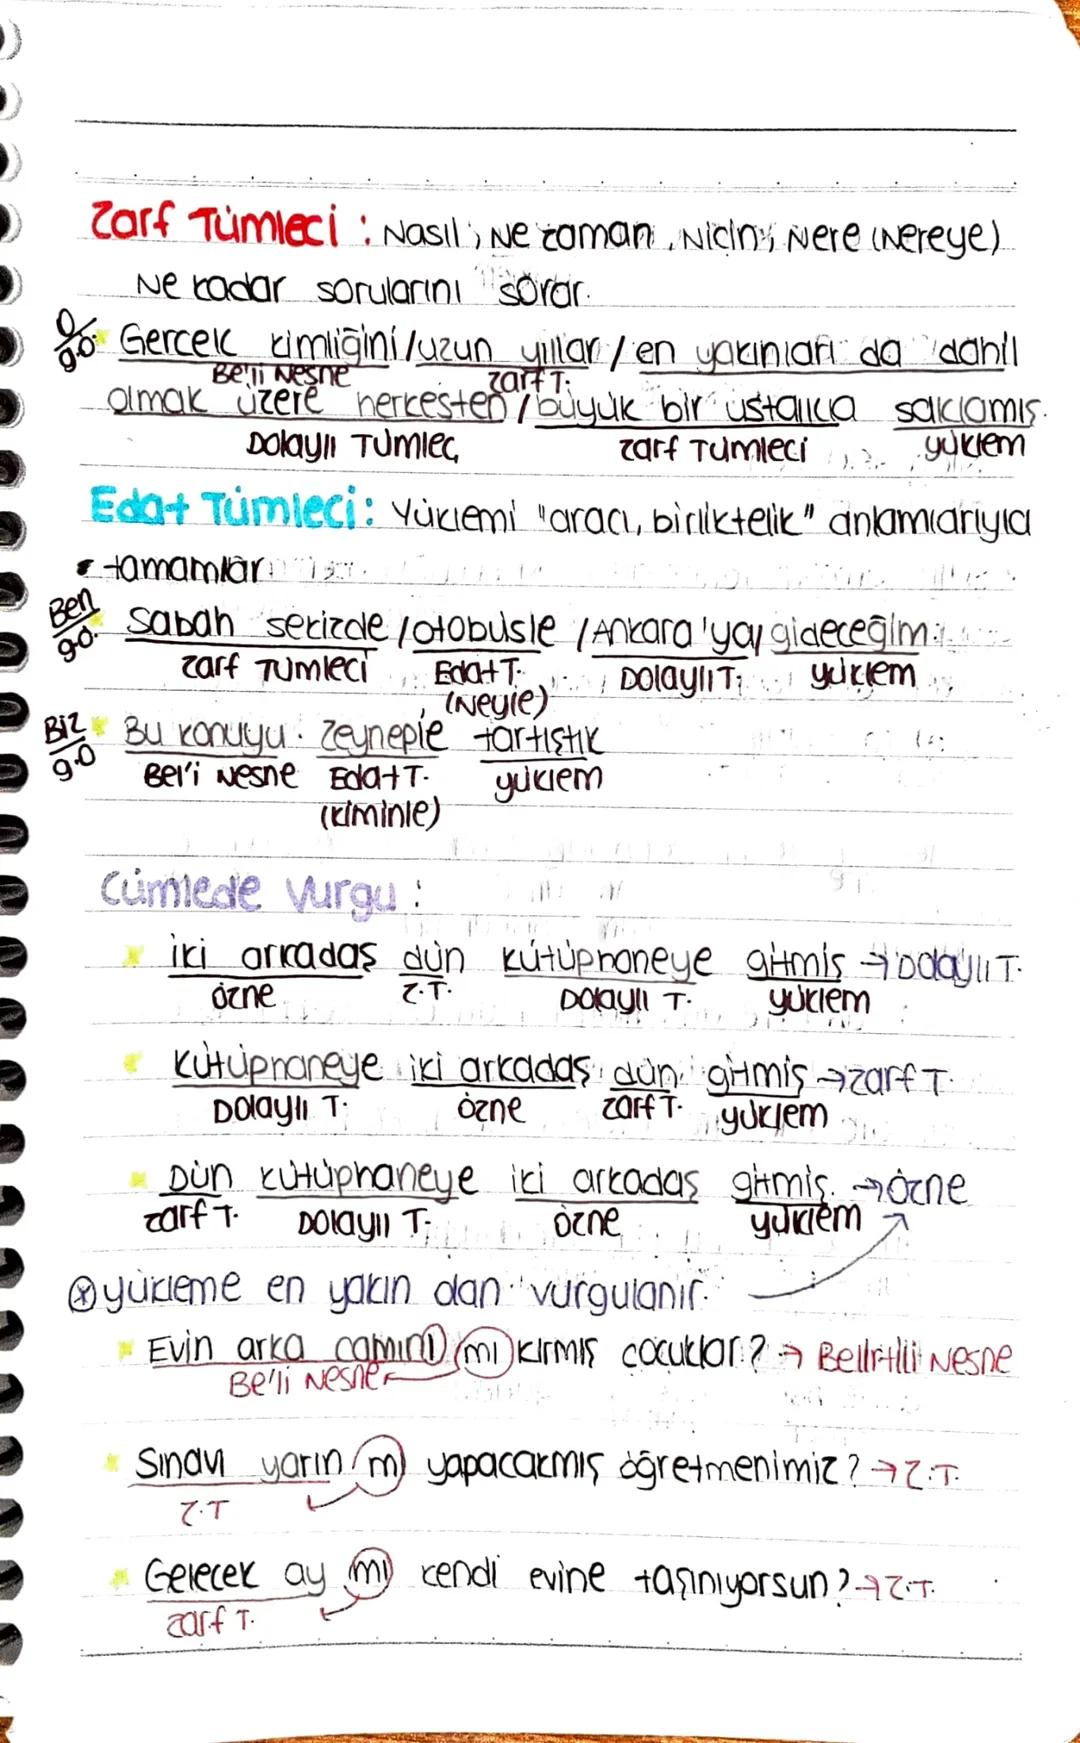 Zarf Tümleci : Nasıl, Ne zaman, Niçin, Nere (Nereye)
Ne kadar sorularını sorar.
O/g.ö. Gerçek kimliğini / uzun yıllar / en yakınları da dahil
Be'li Nesne Zarf T.
olmak üzere herkesten / büyük bir ustalıkla saklamış.
Dolaylı Tümleç Zarf Tümleci yüklem
Edat Tümleci : Yüklemi "aracı, birliktelik" anlamlarıyla
tamamlar
Ben/gö. Sabah sekizde / otobüsle / Ankara'ya / gideceğim.
Zarf Tümleci Edat T. Dolaylı T. yüklem
(Neyle)
Biz/g.ö Bu konuyu Zeyneple tartıştık
Bel'i Nesne Edat T. yüklem
(kiminle)
Cümlede Vurgu :
İki arkadaş dün kütüphaneye gitmiş → Dolaylı T.
özne Z.T. Dolaylı T. yüklem
Kütüphaneye iki arkadaş dün gitmiş → zarf T.
Dolaylı T. özne zarf T. yüklem
Dün kütüphaneye iki arkadaş gitmiş. → özne
zarf T. Dolaylı T. özne yüklem
⊗ yükleme en yakın olan vurgulanır.
Evin arka camını mı kırmış çocuklar? → Belirtili Nesne
Be'li Nesne
Sınavı yarın mı yapacakmış öğretmenimiz? → Z.T.
Z.T
Gelecek ay mı kendi evine taşınıyorsun? → Z.T.
zarf T.